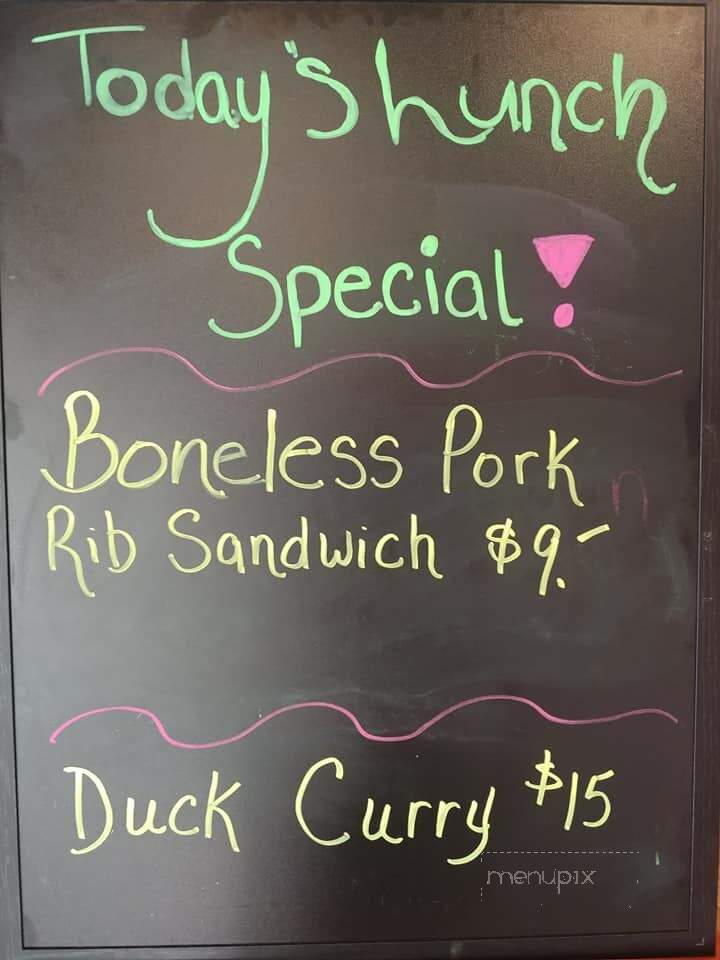 Today's Lunch
Special!
Boneless Pork
Rib Sandwich $9.-
Duck Curry $15
menupix